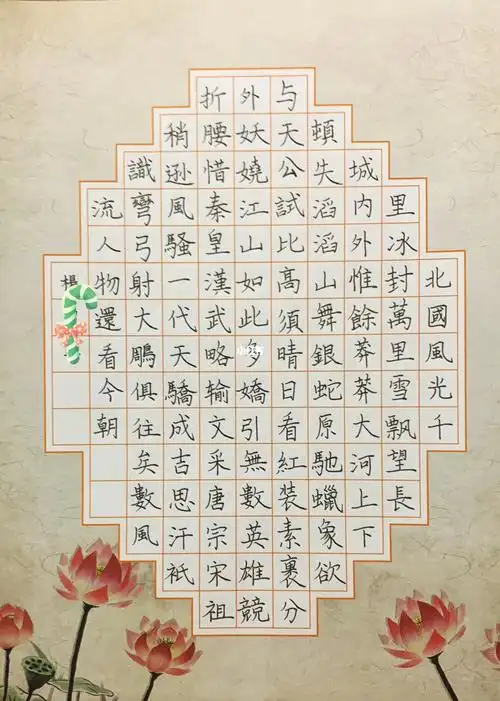 北國風光千
里冰封萬里雪飄望長
城内外惟餘莽莽大河上下
頓失滔滔山舞銀蛇原馳蠟象欲
与天公試比高須晴日看紅裝素裹分
外妖嬈江山如此多嬌引無數英雄競
折腰惜秦皇漢武略輸文采唐宗宋祖
稍逊風騷一代天驕成吉思汗衹
識彎弓射大鵰俱往矣數風
流人物還看今朝
小红书